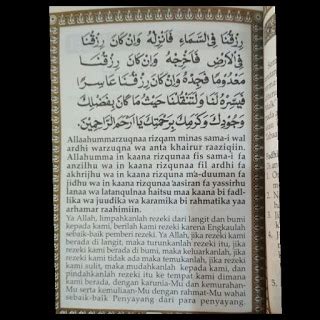 رِزْقُنَا فِى السَّمَاءِ فَأَنْزِلْهُ وَإِنْ كَانَ رِزْقُنَا
فِى الْأَرْضِ فَأَخْرِجْهُ وَإِنْ كَانَ رِزْقُنَا
مَعْدُومًا فَجِدْهُ وَإِنْ كَانَ رِزْقُنَا عَاسِرًا
فَيَسِّرْهُ لَنَا وَلَتَنْقُلْنَا حَيْثُ مَا كَانَ بِفَضْلِكَ
وَجُودِكَ وَكَرَمِكَ بِرَحْمَتِكَ يَا أَرْحَمَ الرَّاحِمِيْنَ
Allaahummarzuqnaa rizqam minas sama-i wal
ardhi warzuqna wa anta khairur raaziqiin.
Allahumma in kaana rizquna fis sama-i fa
anzilhu wa in kaana rizquna fil ardhi fa
akhrijhu wa in kaana rizquna ma'duuman fa
jidhu wa in kaana rizqunaa 'asiran fa yassirhu
lanaa wa latanqulna haitsu maa kaana bi fadl-
lika wa juudika wa karamika bi rahmatika yaa
arhamar raahimiin.
Ya Allah, limpahkanlah rezeki dari langit dan bumi
kepada kami, berilah kami rezeki karena Engkaulah
sebaik-baik pemberi rezeki. Ya Allah, jika rezeki kami
berada di langit, maka turunkanlah rezeki itu, jika
rezeki kami berada di bumi, maka keluarkanlah, jika
rezeki kami tidak ada maka temukanlah, jika rezeki
kami sulit, maka mudahkanlah kepada kami, dan
pindahkanlah rezeki itu ke tempat kami dimana
kami berada, dengan karunia-Mu dan kemurahan-
Mu serta kemuliaan-Mu dengan rahmat-Mu wahai
sebaik-baik Penyayang dari para penyayang.